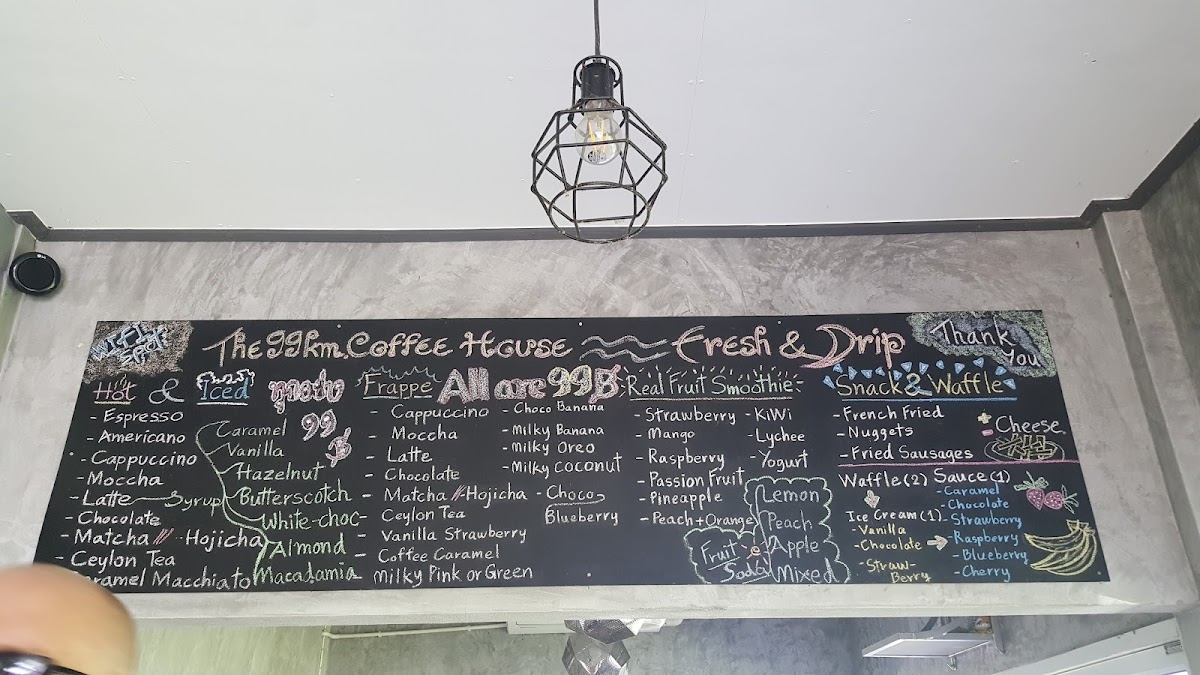 The 99km. Coffee House Fresh & Drip
Thank
You
Hot & Iced
ทุกแก้ว
99฿
- Espresso
- Americano
- Cappuccino
- Moccha
- Latte
- Chocolate
- Matcha // Hojicha
- Ceylon Tea
Caramel Macchiato
Syrup
Caramel
Vanilla
Hazelnut
Butterscotch
White-choc
Almond
Macadamia
Frappe
All are 99฿
- Cappuccino
- Moccha
- Latte
- Chocolate
- Matcha // Hojicha
- Ceylon Tea
- Vanilla Strawberry
- Coffee Caramel
- Milky Pink or Green
- Choco Banana
- Milky Banana
- Milky Oreo
- Milky Coconut
- Choco
Blueberry
Real Fruit Smoothie
- Strawberry
- Mango
- Raspberry
- Passion Fruit
- Pineapple
- Peach + Orange
- Kiwi
- Lychee
- Yogurt
Fruit
Soda
Lemon
Peach
Apple
Mixed
Snack & Waffle
- French Fried
- Nuggets
- Fried Sausages
+ Cheese
Waffle (2) Sauce (1)
Ice Cream (1)
- Vanilla
- Chocolate
- Straw-
Berry
- Caramel
- Chocolate
- Strawberry
- Raspberry
- Blueberry
- Cherry